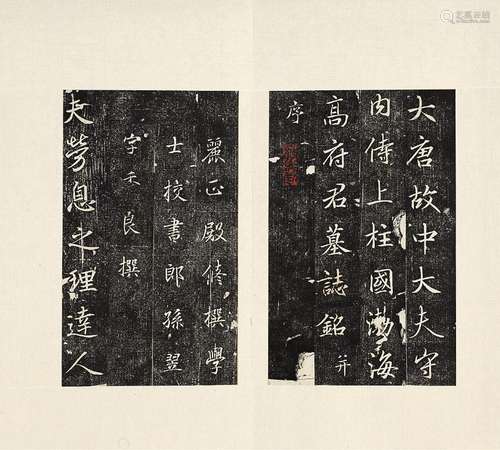 大唐故中大夫守
内侍上柱國渤海
高府君墓誌銘并
序
麗正殿修撰學
士校書郎孫翌
字季良撰
夫勞息之理達人